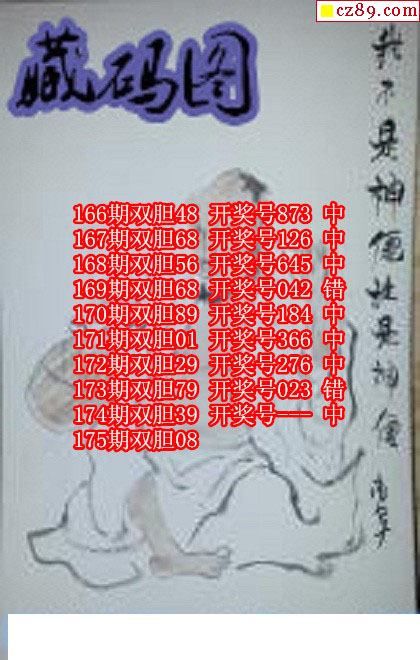 cz89.com
藏码图
我不是神僊是神僊
166期双胆48 开奖号873 中
167期双胆68 开奖号126 中
168期双胆56 开奖号645 中
169期双胆68 开奖号042 错
170期双胆89 开奖号184 中
171期双胆01 开奖号366 中
172期双胆29 开奖号276 中
173期双胆79 开奖号023 错
174期双胆39 开奖号--- 中
175期双胆08